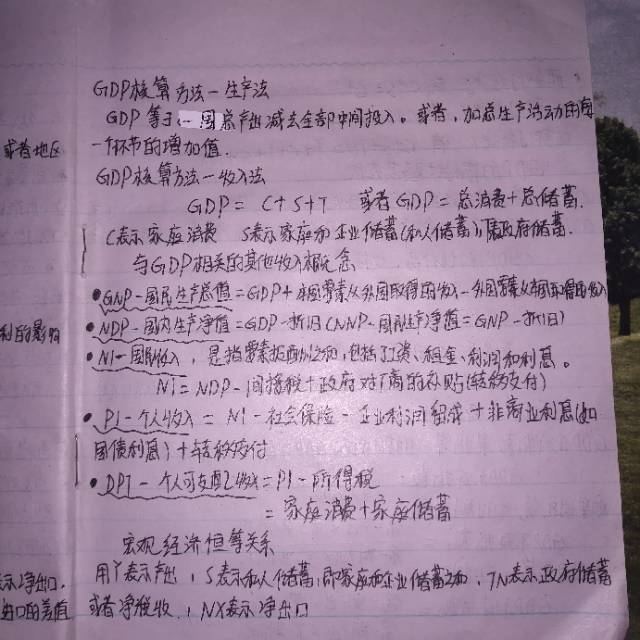 GDP核算方法一生产法
GDP等于一国总产出减去全部中间投入。或者,加总生产活动的每
或者地区
一个环节的增加值.
GDP核算方法一收入法
GDP = C+S+T 或者GDP=总消费+总储蓄.
C表示家庭消费 S表示家庭和企业储蓄(私人储蓄),T政府储蓄.
与GDP相关的其他收入概念
•GNP-国民生产总值=GDP+本国要素从外国取得的收入-外国要素从本国取得的收入
利的影响
•NDP-国内生产净值=GDP-折旧(NNP-国民生产净值=GNP-折旧)
•NI-国民收入,是指要素报酬之和,包括工资、租金、利润和利息。
NI=NDP-间接税+政府对厂商的补贴(转移支付)
•PI-个人收入=NI-社会保险-企业利润留成+非商业利息(如
国债利息)+转移支付
•DPI-个人可支配收入=PI-所得税
=家庭消费+家庭储蓄
宏观经济恒等关系
表示净出口.
用Y表示产出,S表示私人储蓄,即家庭和企业储蓄之和,TN表示政府储蓄
出口的差值
或者净税收,NX表示净出口